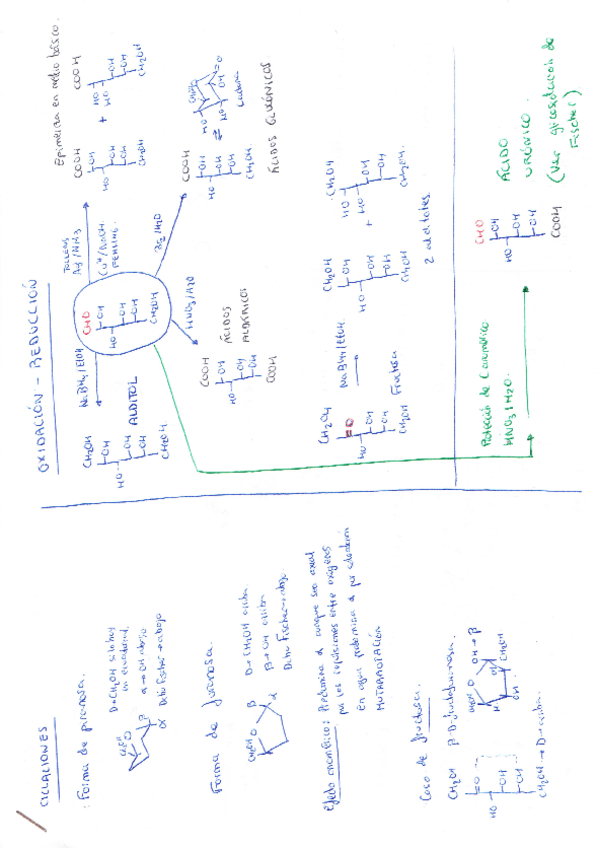 CICLACIONES
· Forma de piranosa.
D=CH₂OH si lo hay
en ecuatorial.
CH₂OH
O
β
α
α → OH abajo
Forma de furanosa.
CH₂OH
O
β
α
D → CH₂OH arriba
β → OH arriba
Efecto anomérico: Predomina α aunque sea axial
por las repulsiones entre oxígenos
En agua predomina
MUTARROTACIÓN
Caso de fructosa.
CH₂OH
β-D-fructofuranosa.
=O
HO
OH
OH
CH₂OH → D → arriba
CH₂OH
O
OH → β
OH
CH₂OH
OXIDACIÓN - REDUCCIÓN
CH₂OH
OH
HO
OH
OH
CH₂OH
ALDITOL
NaBH₄/EtOH
CHO
OH
HO
OH
OH
CH₂OH
TOLLENS
Ag/NH₃
Cu²⁺/NaOH
FEHLING.
Epimeriza en medio básico.
COOH
OH
HO
OH
OH
CH₂OH
+
COOH
HO
HO
OH
OH
CH₂OH
Br₂/H₂O
COOH
OH
HO
OH
OH
CH₂OH
⇌
CH₂OH
HO
OH
=O
Lactona
HNO₃/H₂O
COOH
OH
HO
OH
OH
COOH
ÁCIDOS
ALDÁRICOS
CH₂OH
=O
HO
OH
OH
CH₂OH
Fructosa
NaBH₄/EtOH
CH₂OH
OH
HO
OH
OH
CH₂OH
+
CH₂OH
HO
HO
OH
OH
CH₂OH.
2 alditoles.
Protección de C anomérico
HNO₃/H₂O.
CHO
OH
HO
OH
OH
COOH
ÁCIDO
URÓNICO.
(Ver glicosidación de
Fischer)